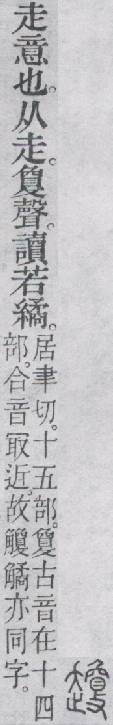 走意也。从走。夐聲。讀若繘。
居聿切。十五部。夐古音在十四
部。合音冣近。故觼亦同字。